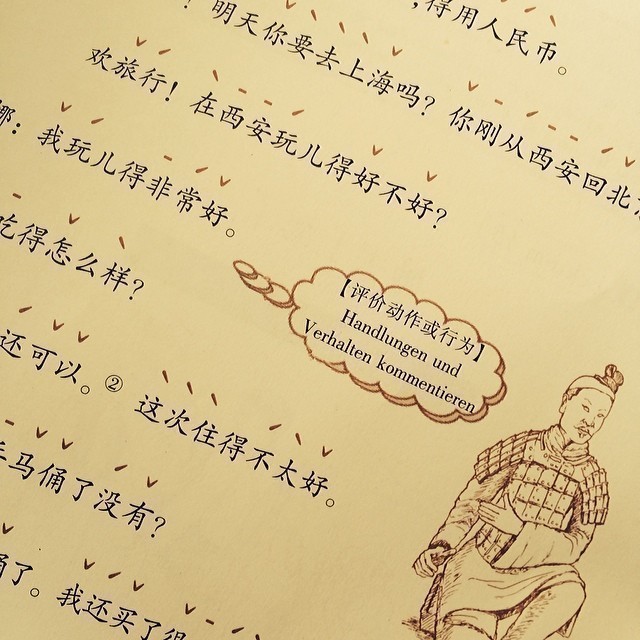 得用人民币。
明天你要去上海吗？你刚从西安回北
欢旅行！在西安玩儿得好不好？
娜：我玩儿得非常好。
吃得怎么样？
【评价动作或行为】
Handlungen und
Verhalten kommentieren
还可以。② 这次住得不太好。
马俑了没有？
俑了。我还买了得